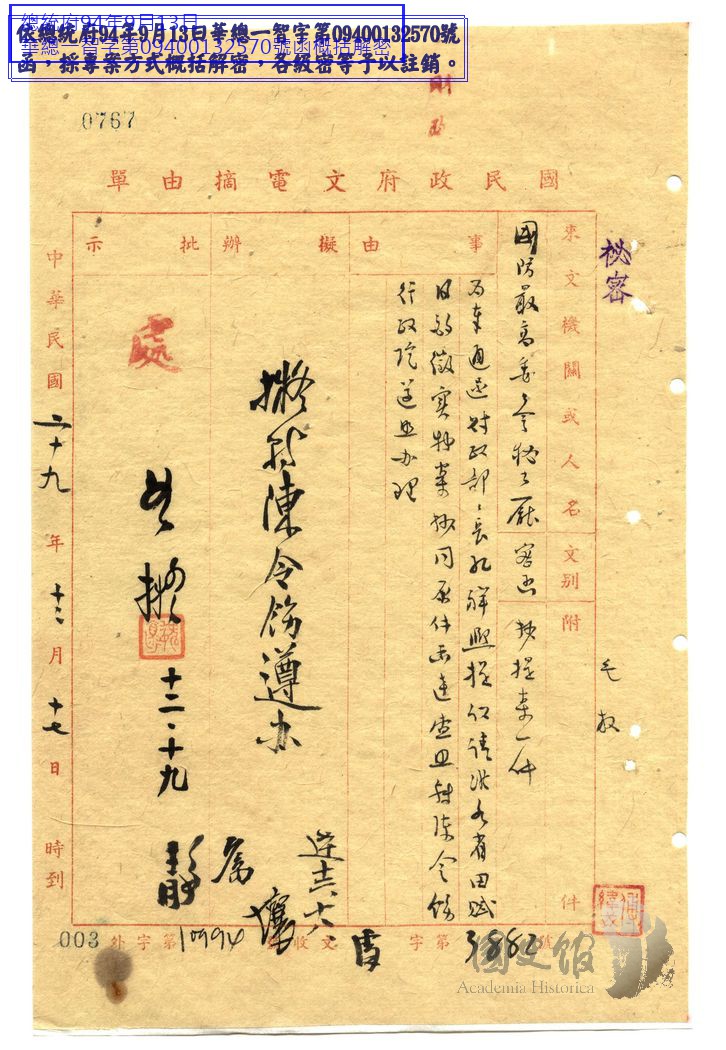 總統府94年9月13日
華總一智字第09400132570號函概括解密
依總統府94年9月13日華總一智字第09400132570號
函，採專案方式概括解密，各級密等予以註銷。
0767
財政
國民政府文電摘由單
秘密
來文機關或人名
國防最高委員會秘書廳
文別
密函
附件
抄提案一件
事由
為奉通過財政部部長孔祥熙提仁請將各省田賦
目的徵實物案抄同原件函達查照轉陳令飭
行政院遵照办理
擬辦
擬轉陳令飭遵办
批示
處
如擬
十二、十九
中華民國二十九年十二月十七日時到
收文字第3882號
外字第10994
003
國史館
Academia Historica